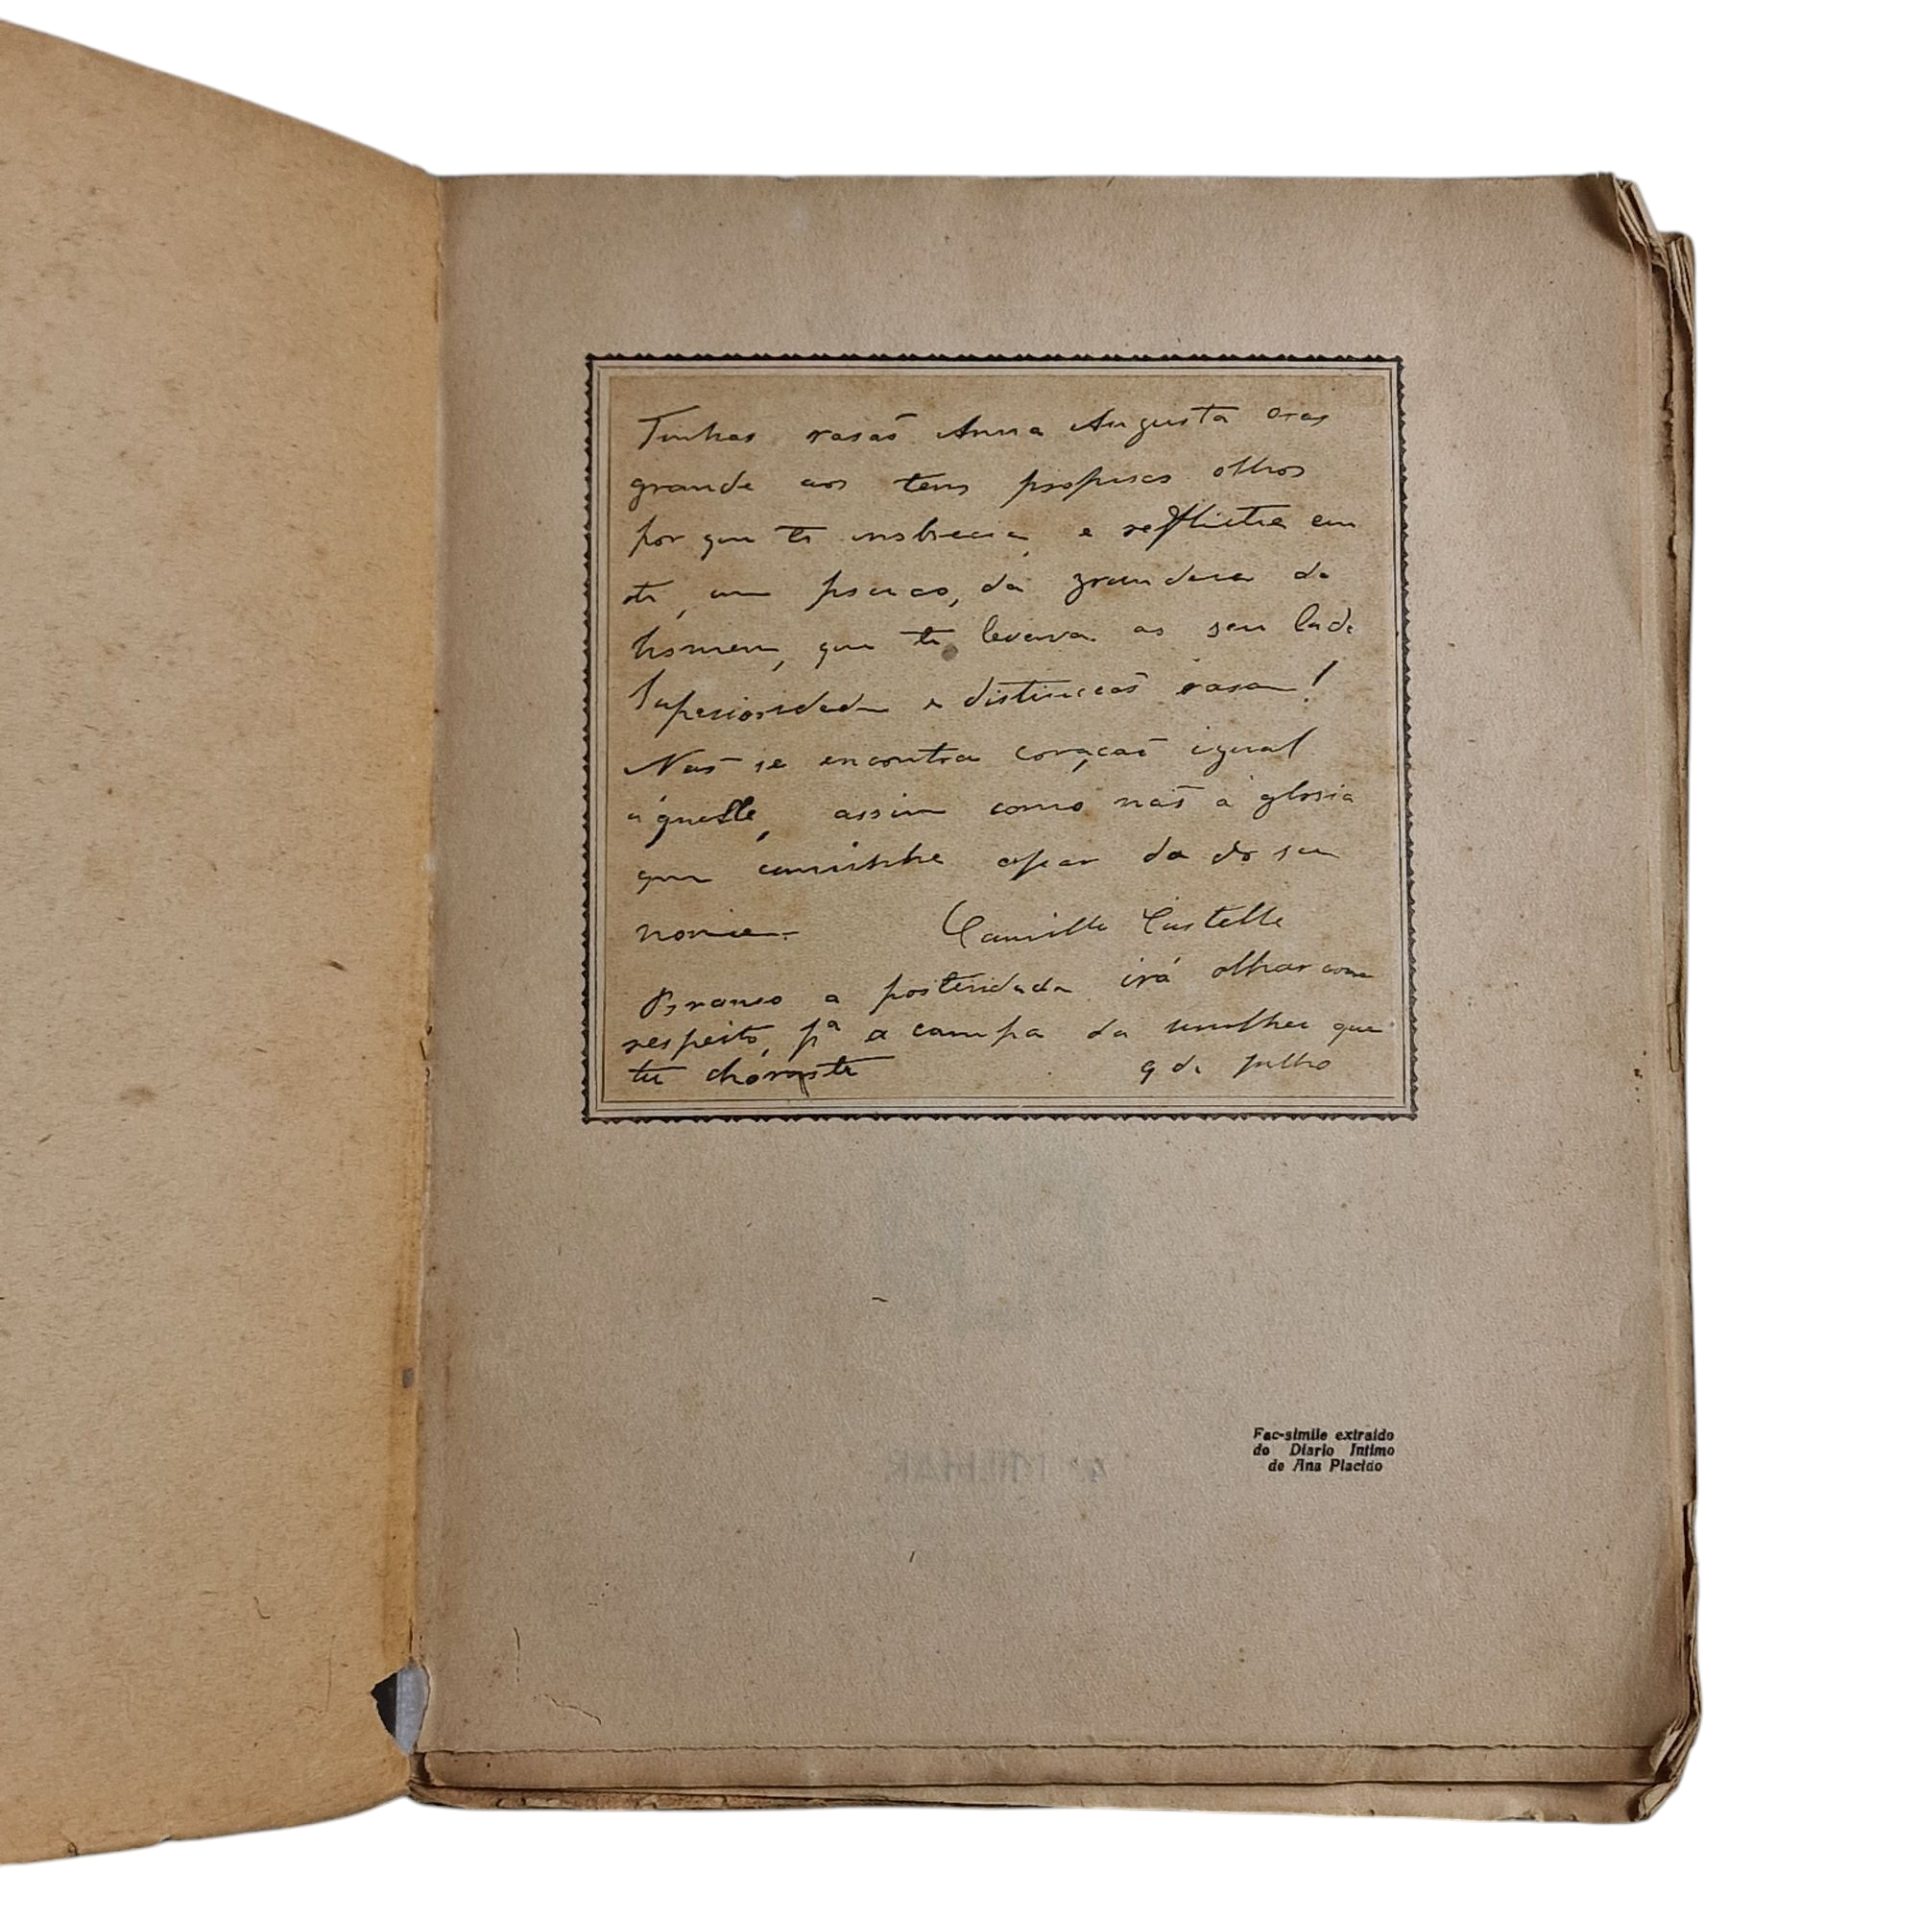 Tinhas rasaõ Anna Augusta eras
grande aos teus proprios olhos
por que te nobrecia, e reflictia em
ti, um pouco, da grandesa do
homem, que te levava ao seu lado
Superioridade e distincçaõ rasa!
Naõ se encontra coraçaõ igual
áquelle, assim como naõ a gloria
que caminhe apar da do seu
nome. Camillo Castello
Branco a posteridade irá olhar com
respeito, pª a campa da mulher que
tu choraste 9 de Julho
Fac-simile extraido
do Diario Intimo
de Ana Placido
4º MILHAR